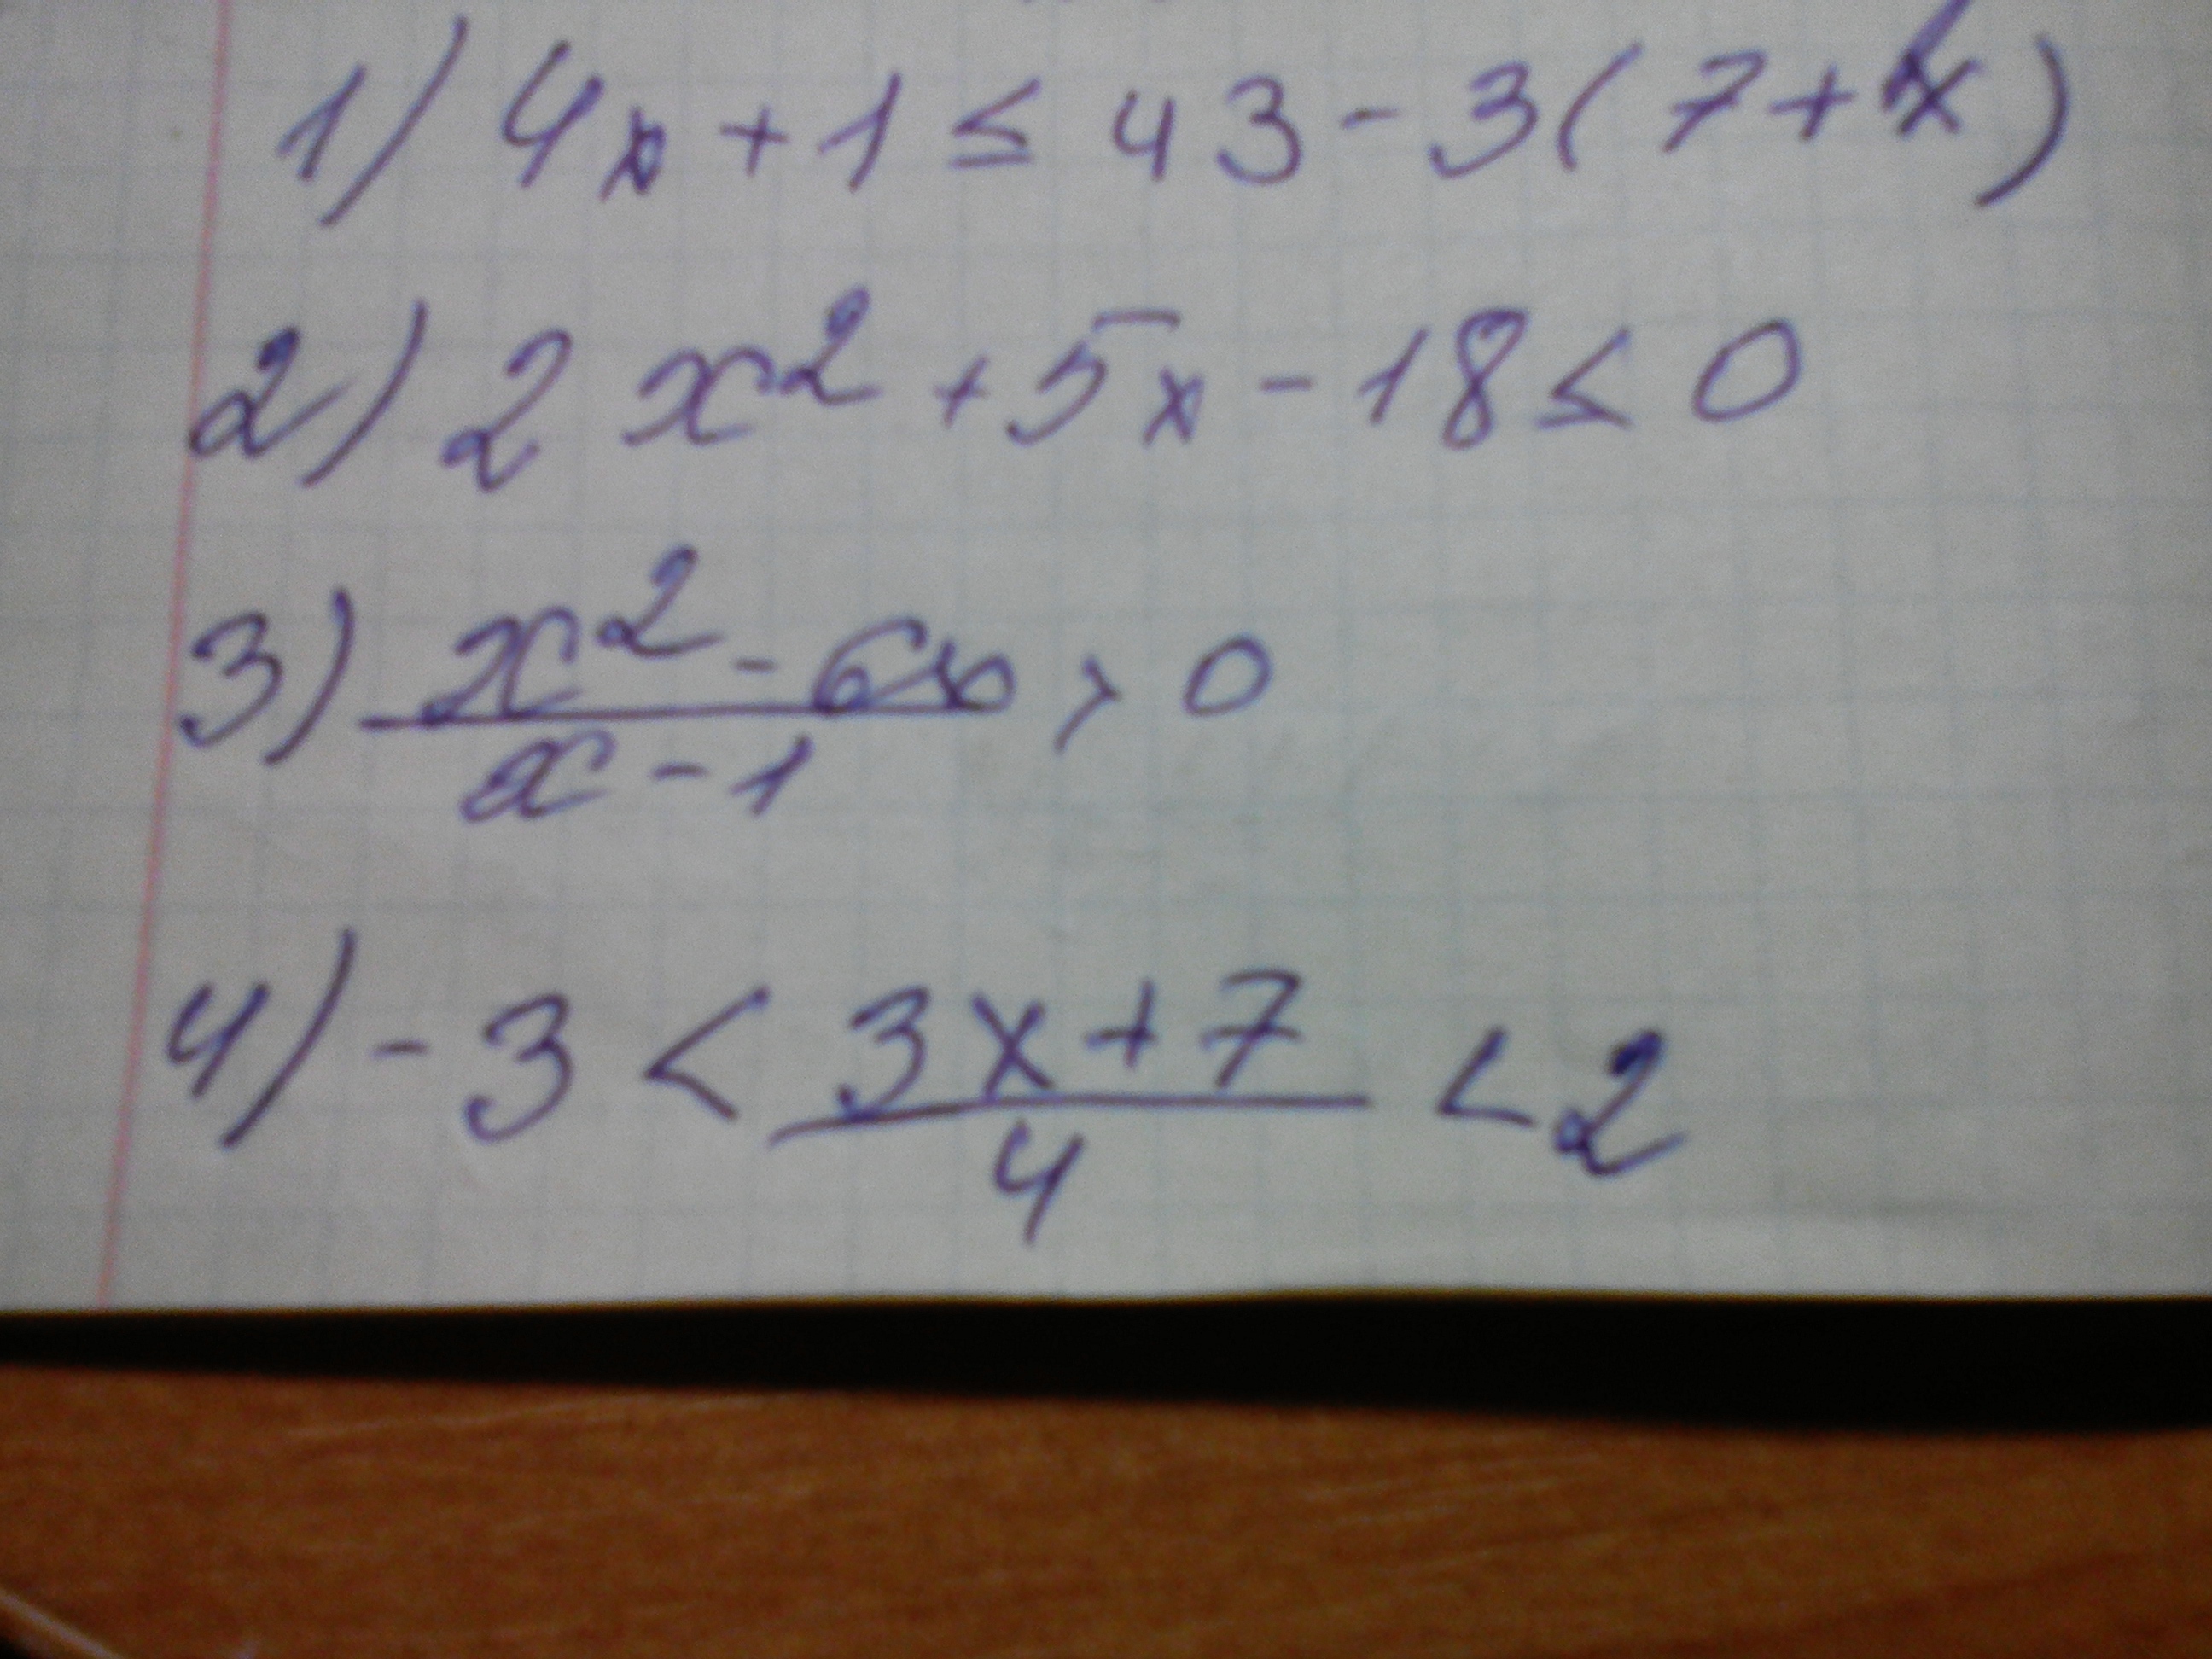 1) 4x + 1 ≤ 43 - 3(7 + x)
2) 2x² + 5x - 18 ≤ 0
3) (x² - 6x)/(x - 1) > 0
4) -3 < (3x + 7)/4 < 2